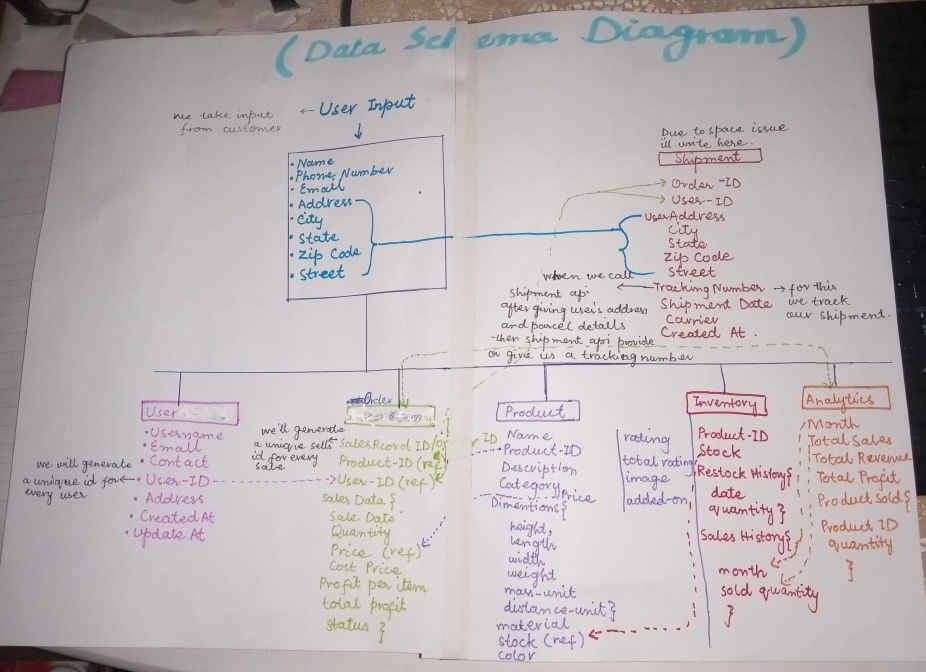 (Data Schema Diagram)
we take input
from customer
← User Input
• Name
• Phone Number
• Email
• Address
• City
• State
• Zip Code
• Street
Due to space issue
ill write here.
Shipment
Order-ID
User-ID
User Address
City
State
Zip Code
Street
Tracking Number → for this
we track
our shipment.
Shipment Date
Carrier
Created At.
when we call
Shipment api
after giving user's address
and parcel details
then shipment api provide
or give us a tracking number
User
• Username
• Email
• Contact
• User-ID
• Address
• Created At
• Update At
we will generate
a unique id for
every user
Order
we'll generate
a unique sells
id for every
sale
Sales Record ID/or
er ID
Product-ID (ref)
User-ID (ref)
Sales Data {
Sale Date
Quantity
Price (ref)
Cost Price
Profit per item
total profit
status }
Product
Name
Product-ID
Description
Category
Price
Dimentions {
height,
length
width
weight
mass-unit
distance-unit }
material
stock (ref)
color
rating
total rating
image
added-on
Inventory
Product-ID
Stock
Restock History {
date
quantity }
Sales History {
month
sold quantity
}
Analytics
Month
Total Sales
Total Revenue
Total Profit
Product Sold {
Product ID
quantity
}